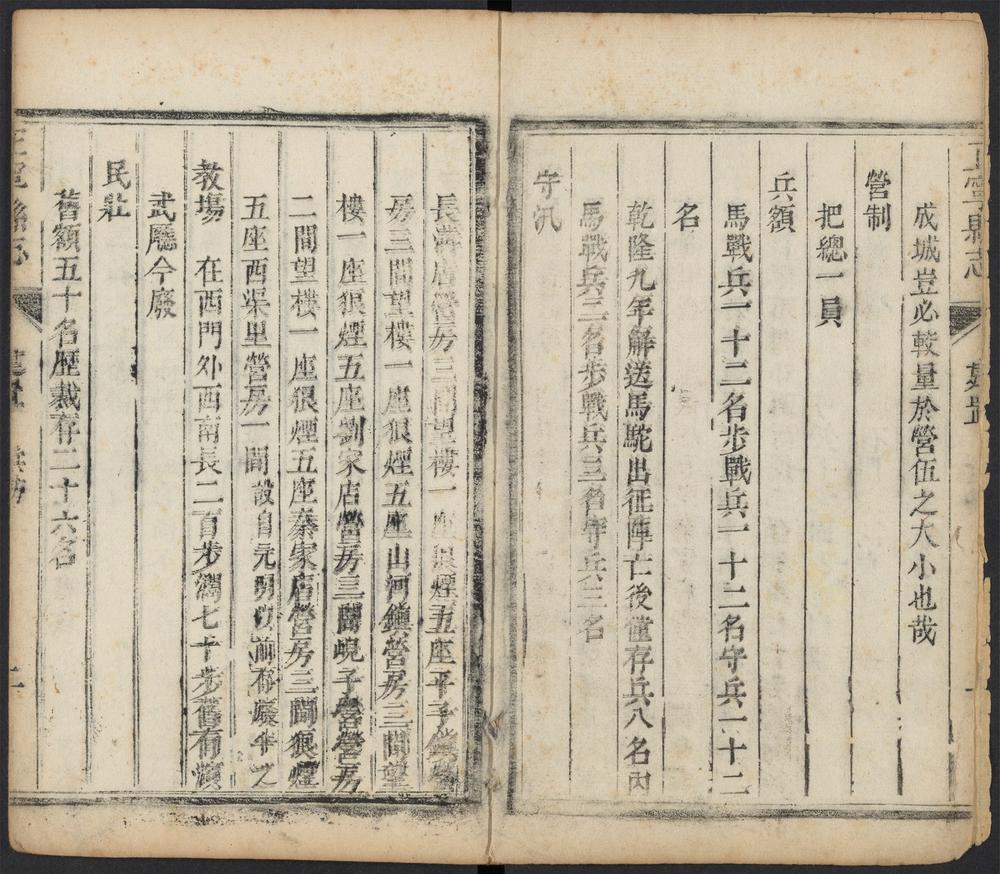 寧縣志
成城豈必較量於營伍之大小也哉
營制
把總一員
兵額
馬戰兵一十二名步戰兵一十二名守兵一十二
名
乾隆九年解送馬駝出征陣亡後僅存兵八名內
馬戰兵二名步戰兵三名守兵三名
守汛
長店營房三間望樓一座狼煙五座平子鎮營
房三間望樓一座狼煙五座山河鎮營房三間望
樓一座狼煙五座劉家店營房三間峴子營營房
二間望樓一座狼煙五座秦家店營房三間狼煙
五座西渠里營房一間設自元明以前存廢半之
教場 在西門外西南長二百步濶七十步舊有演
武廳今廢
民壯
舊額五十名歷裁存二十六名